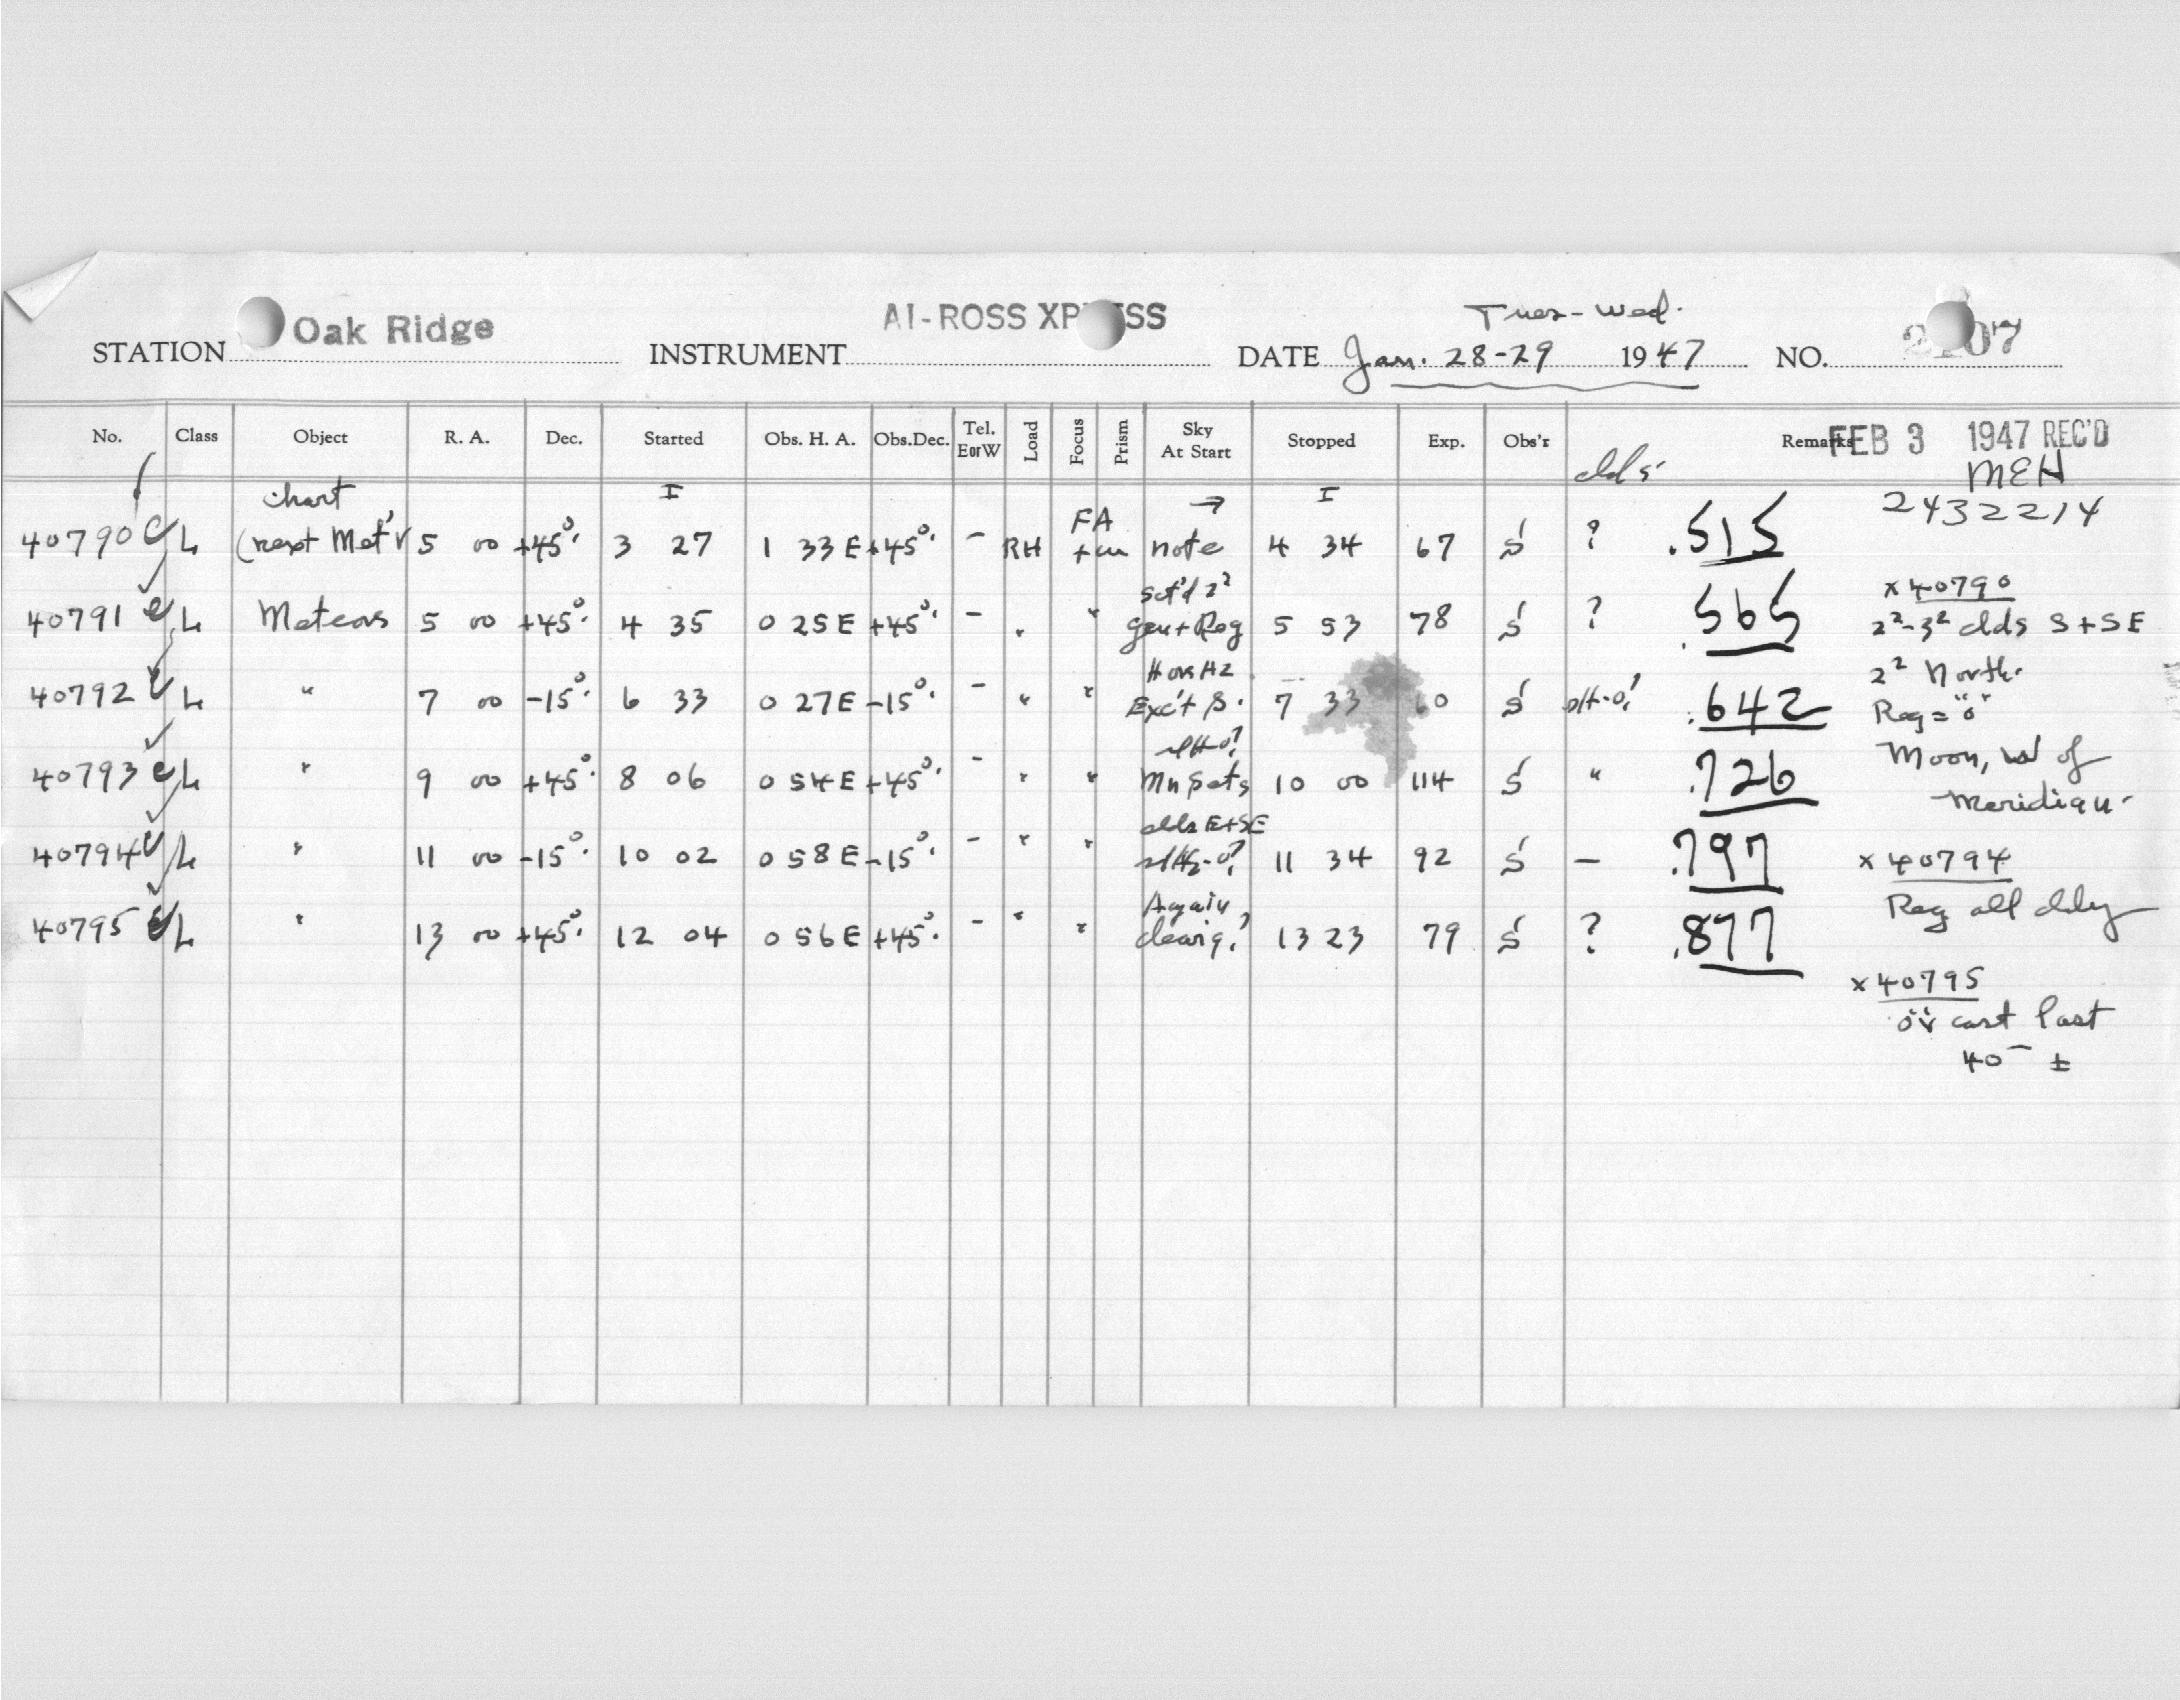 STATION Oak Ridge INSTRUMENT AI-ROSS DATE Jan. 28-29 1947 NO.
Tues-Wed.
No. Class Object R. A. Dec. Started Obs. H. A. Obs.Dec. Tel. EorW Load Focus Prism Sky At Start Stopped Exp. Obs'r Remarks FEB 3 1947 REC'D
MEH
clds
chart I FA → I 2432214
40790 L (next Met'r 5 00 +45° 3 27 1 33 E +45° - RH note 4 34 67 S ? .515
sct'd 2² x 40790
40791 L Meteors 5 00 +45° 4 35 0 25 E +45° - " " gen + Reg 5 53 78 S ? .565 2²-3² clds S + SE
2² North.
40792 L " 7 00 -15° 6 33 0 27 E -15° - " " 7 33 60 S .642 Reg = "0"
40793 L " 9 00 +45° 8 06 0 54 E +45° - " " Mn Sets 10 00 114 S " .726 Moon, W of
Meridian.
clds E+SE
40794 L " 11 00 -15° 10 02 0 58 E -15° - " " 11 34 92 S — .797 x 40794
Again Reg all cldy
40795 L " 13 00 +45° 12 04 0 56 E +45° - " " clearig? 13 23 79 S ? .877
x 40795
cast last
40 ±